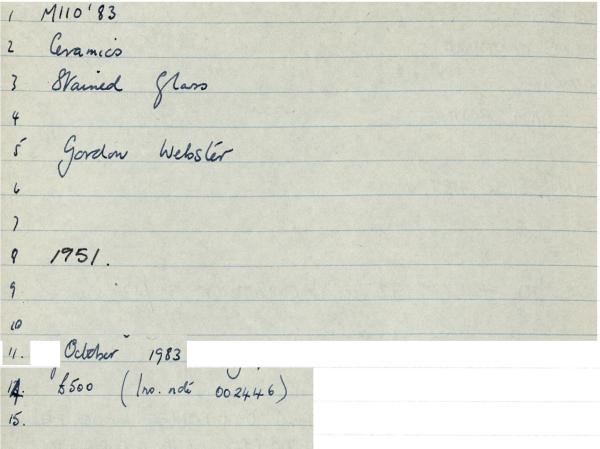 1 M110'83
2 Ceramics
3 Stained Glass
4
5 Gordon Webster
6
7
8 1951.
9
10
11. October 1983
14. £500 (Inv. ndé 002446)
15.